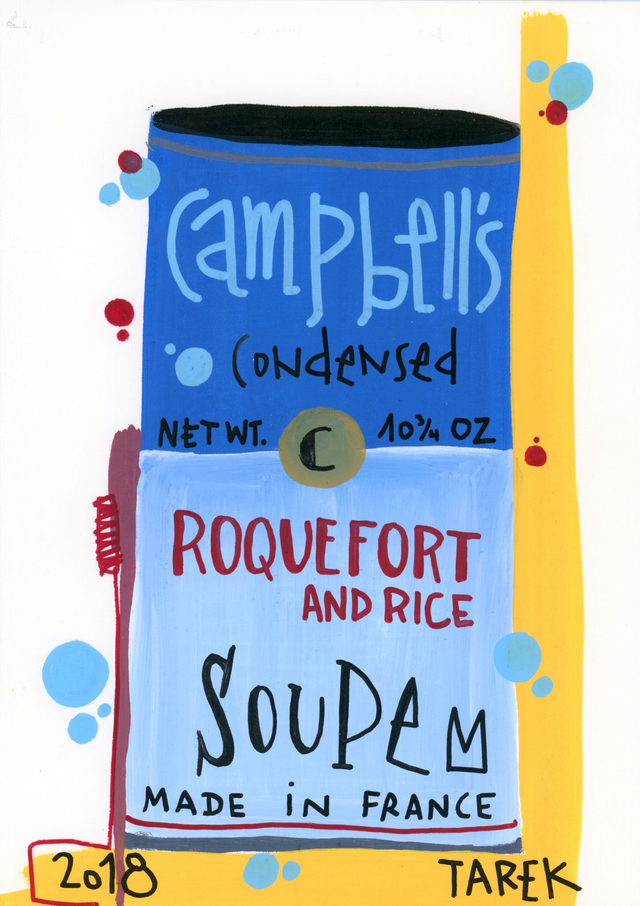 Campbell's
Condensed
NET WT. C 10¾ OZ
ROQUEFORT
AND RICE
SOUPE
MADE IN FRANCE
2018 TAREK